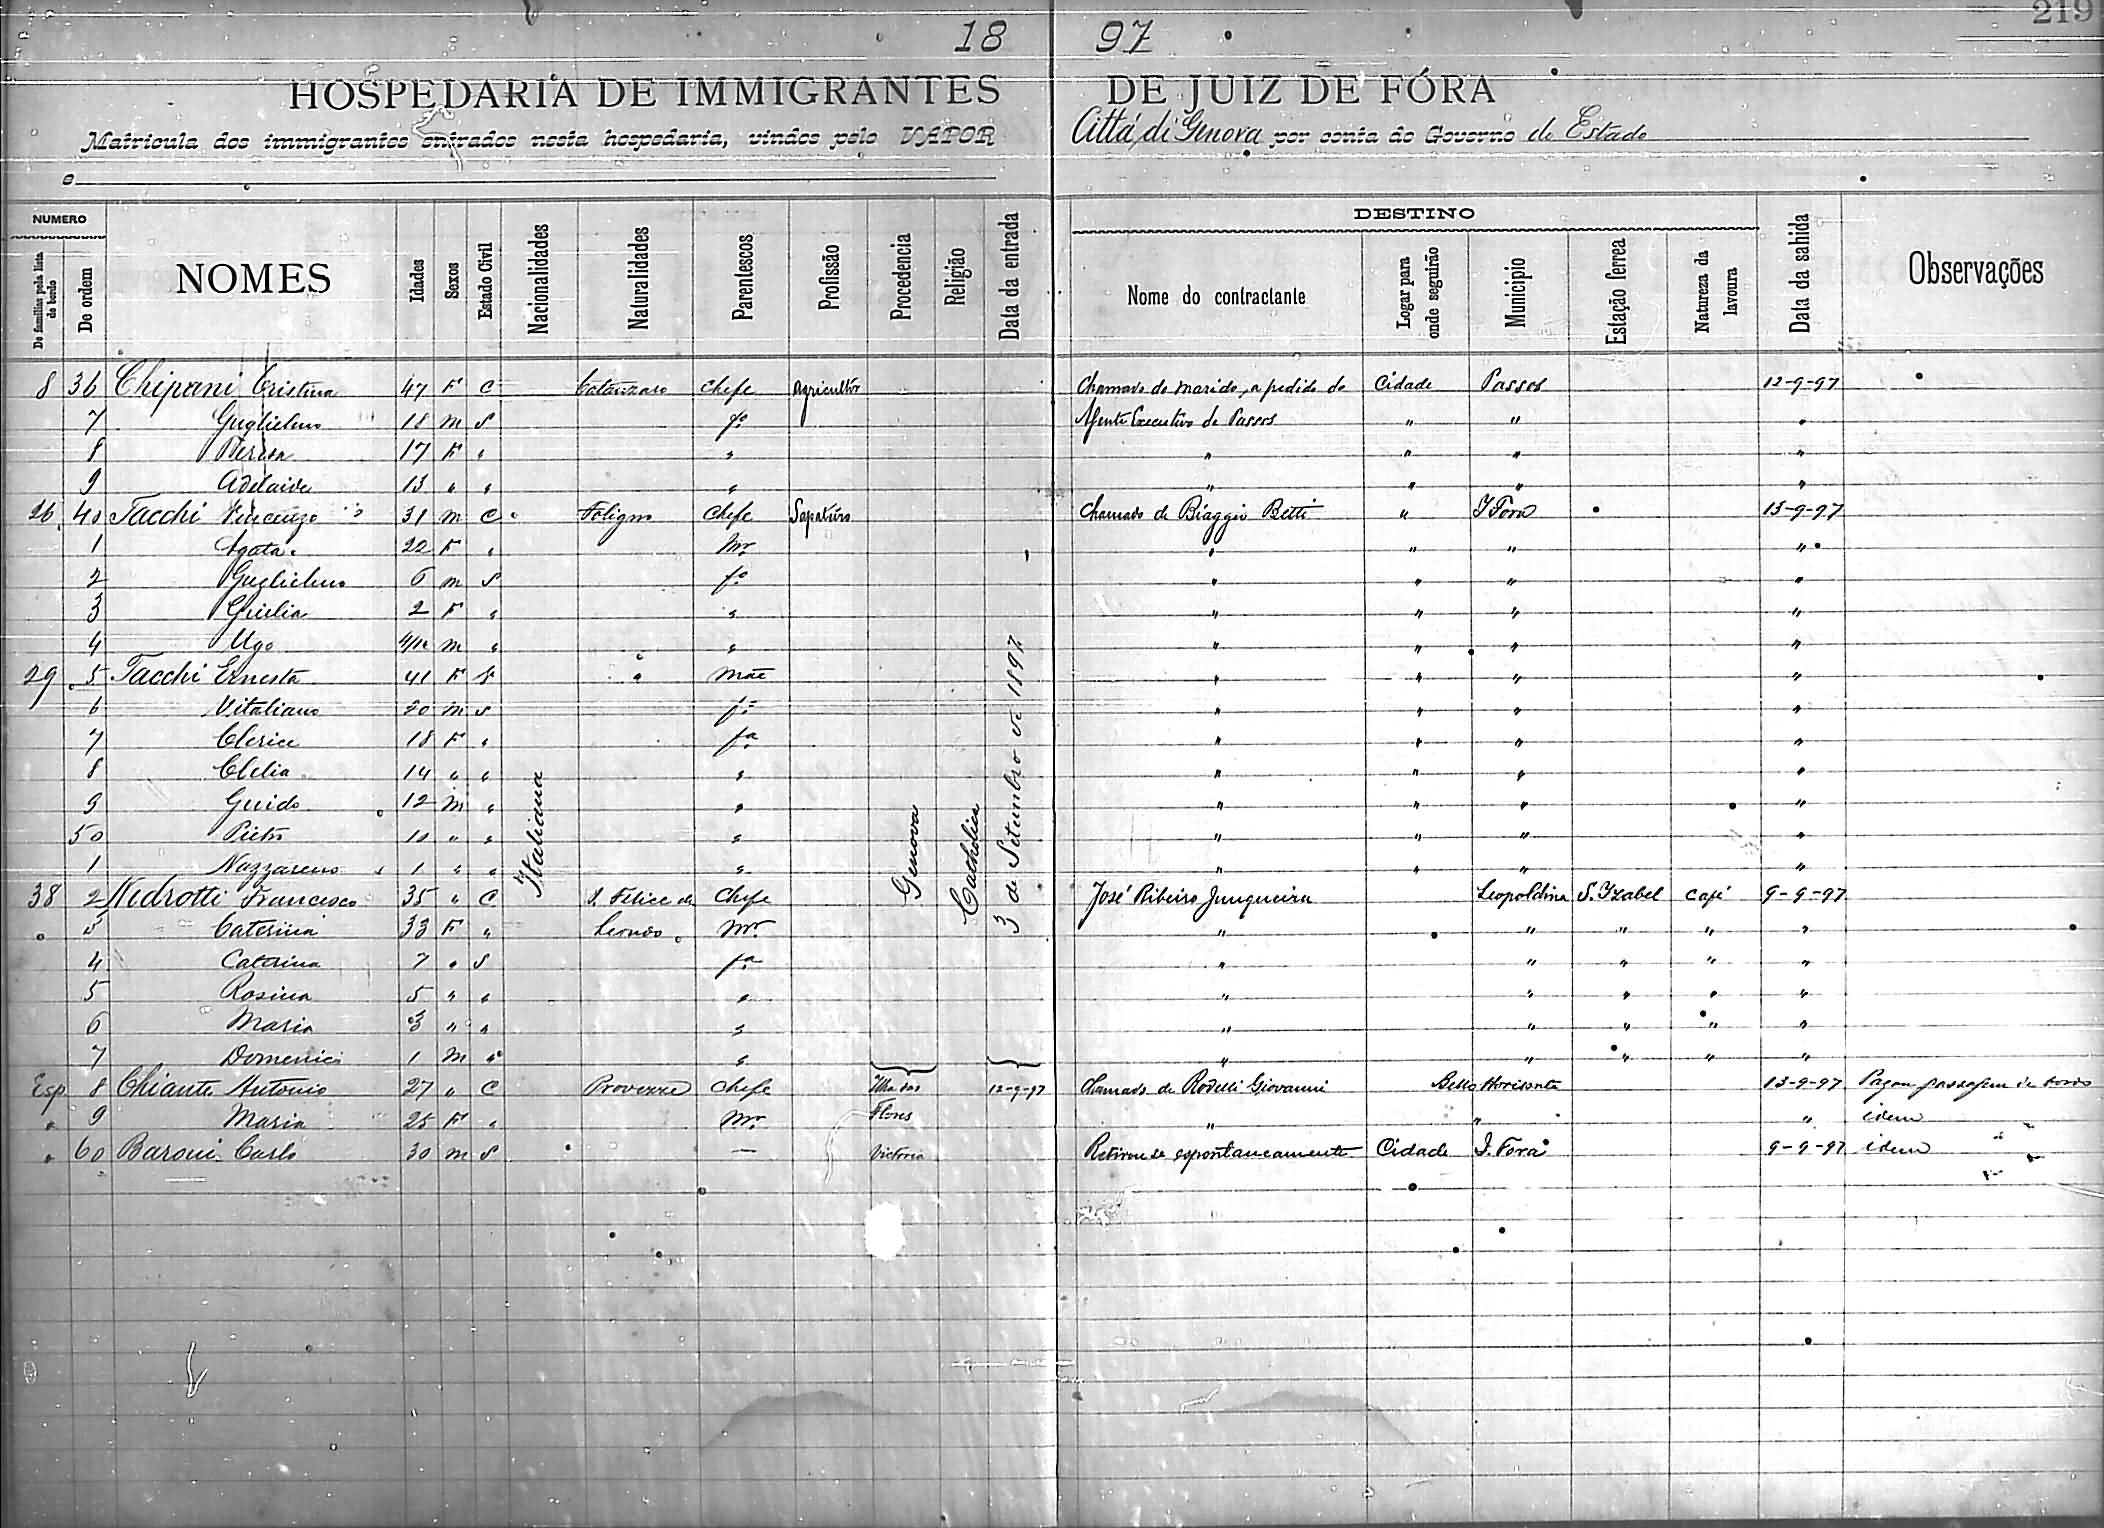 219
18 97
HOSPEDARIA DE IMMIGRANTES DE JUIZ DE FÓRA
Matricula dos immigrantes entrados nesta hospedaria, vindos pelo VAPOR Città di Genova por conta do Governo do Estado
NUMERO DESTINO
De familias pela lista de bordo De ordem NOMES Idades Sexos Estado Civil Nacionalidades Naturalidades Parentescos Profissão Procedencia Religião Data da entrada Nome do contractante Logar para onde seguirão Municipio Estação ferrea Natureza da lavoura Data da sahida Observações
8 36 Chipani Cristina 47 F C Catanzaro Chefe Agricultor Chamado do marido, a pedido do Cidade Passos 12-9-97
7 Guglielmo 18 m S fo Agente Executivo de Passos " " "
8 Teresa 17 F " " " " " "
9 Adelaide 13 " " " " " " "
26 40 Tacchi Vincenzo 31 m C Foligno Chefe Sapateiro Chamado de Biaggio Betti " J Fora 13-9-97
1 Agata 22 F " Mr " " " "
2 Guglielmo 6 m S fo " " " "
3 Giulia 2 F " " " " " "
4 Ugo m " " " " " "
29 5 Tacchi Ernesta 41 F " Mãe " " " "
6 Vitaliano 20 m S fo " " " "
7 Clerice 18 F " fa " " " "
8 Clelia 14 " " " " " " "
9 Guido 12 m " " " " " "
50 Pietro 10 " " " " " " "
1 Nazzareno 1 " " " " " " "
Italiana Genova Catholica 3 de Setembro de 1897
38 2 Nidrotti Francesco 35 " C S. Felice Chefe José Ribeiro Junqueira Leopoldina S. Izabel Café 9-9-97
3 Caterina 33 F " Mr " " " " "
4 Caterina 7 " S fa " " " " "
5 Rosina 5 " " " " " " " "
6 Maria 3 " " " " " " " "
7 Domenico 1 m " " " " " " "
Esp 8 Chiante Antonio 27 " C Chefe Ilha das 12-9-97 Chamado de Rodelli Giovanni Bello Horisonte 13-9-97 Pagou passagem de bordo
" 9 Maria 25 F " Mr Flores " " " idem
" 60 Baroni Carlo 30 m S — Victoria Retirou se espontaneamente Cidade J. Fora 9-9-97 idem